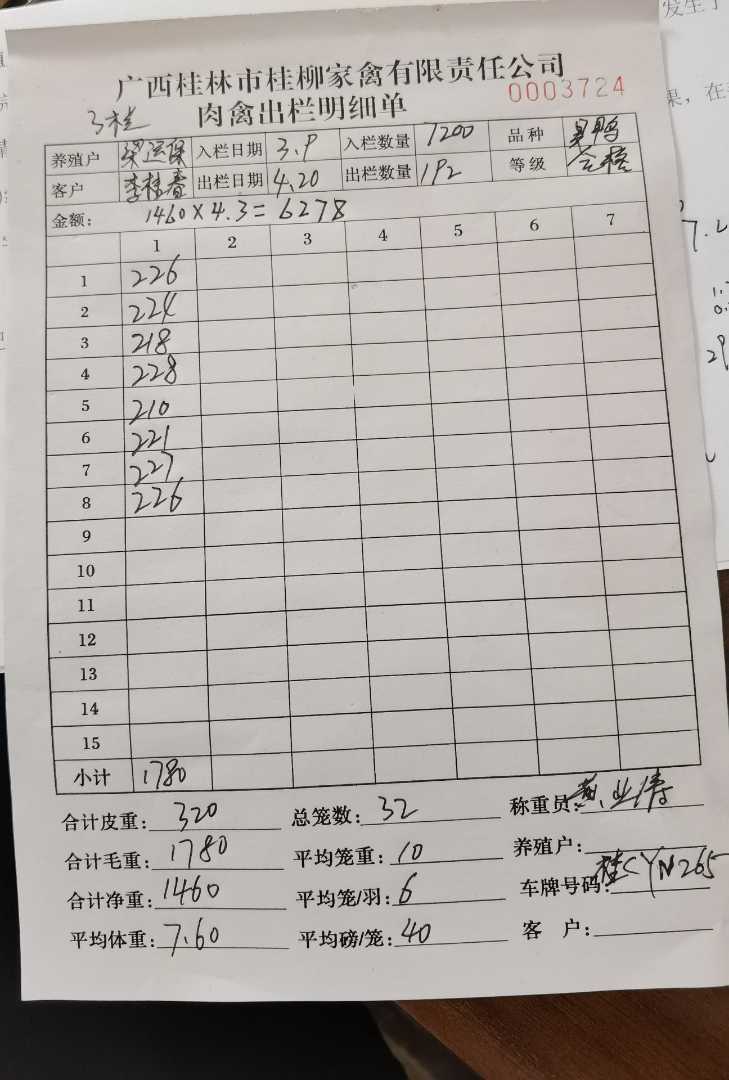 广西桂林市桂柳家禽有限责任公司
肉禽出栏明细单 0003724
3桂
养殖户 梁运保 入栏日期 3.9 入栏数量 7200 品种
客户 李桂春 出栏日期 4.20 出栏数量 192 等级 合格
金额: 1460×4.3=6278
1 2 3 4 5 6 7
1 226
2 224
3 218
4 228
5 210
6 221
7 227
8 226
9
10
11
12
13
14
15
小计 1780
合计皮重: 320 总笼数: 32 称重员:
合计毛重: 1780 平均笼重: 10 养殖户:
合计净重: 1460 平均笼/羽: 6 车牌号码: 桂CYN265
平均体重: 7.60 平均磅/笼: 40 客 户:
发生了
果，在